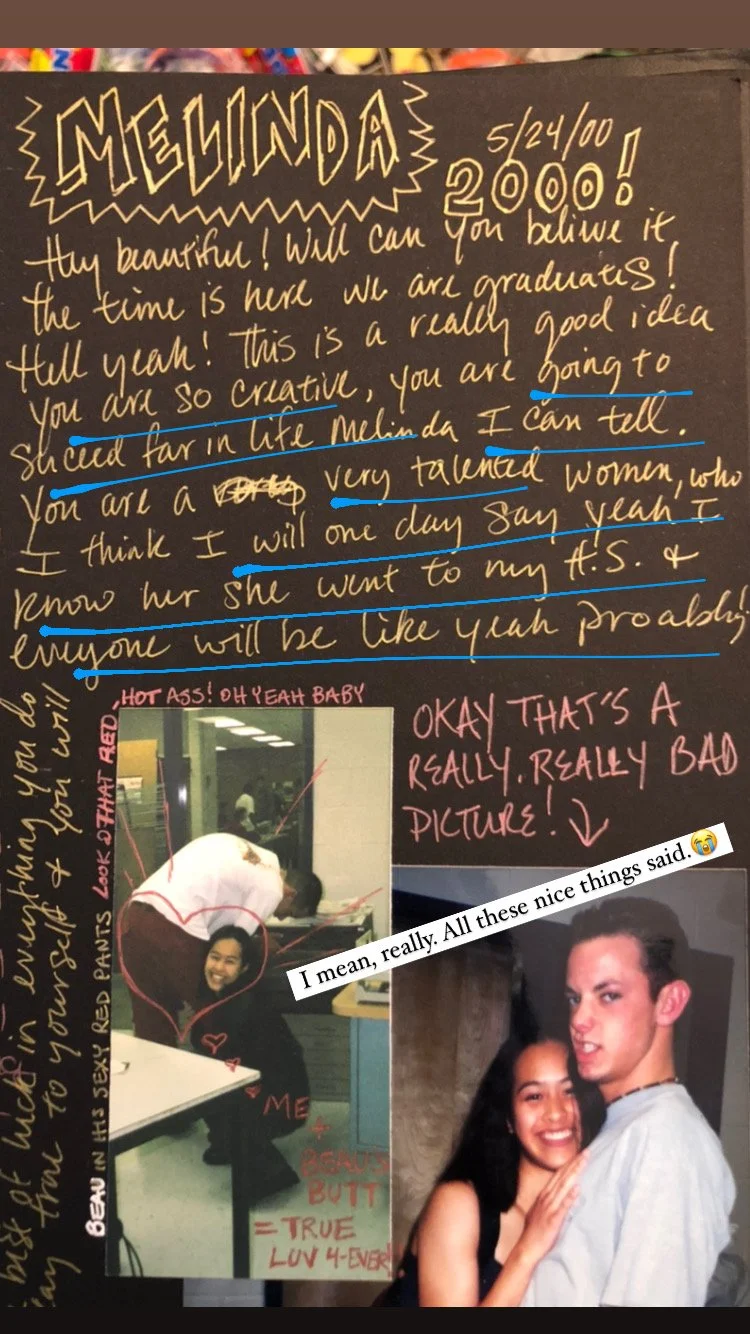 MELINDA
5/24/00
2000!
Hey beautiful! Well can you believe it,
the time is here we are graduates!
Hell yeah! This is a really good idea
you are so creative, you are going to
succeed far in life Melinda I can tell.
You are a very talented women, who
I think I will one day say yeah I
know her she went to my H.S. &
everyone will be like yeah proably!
best of luck in everything you do
stay true to yourself & you will
BEAU IN HIS SEXY RED PANTS LOOK @ THAT RED,
HOT ASS! OH YEAH BABY
OKAY THAT'S A
REALLY, REALLY BAD
PICTURE!
I mean, really. All these nice things said.😭
ME
+
BEAU'S
BUTT
= TRUE
LUV 4-EVER!